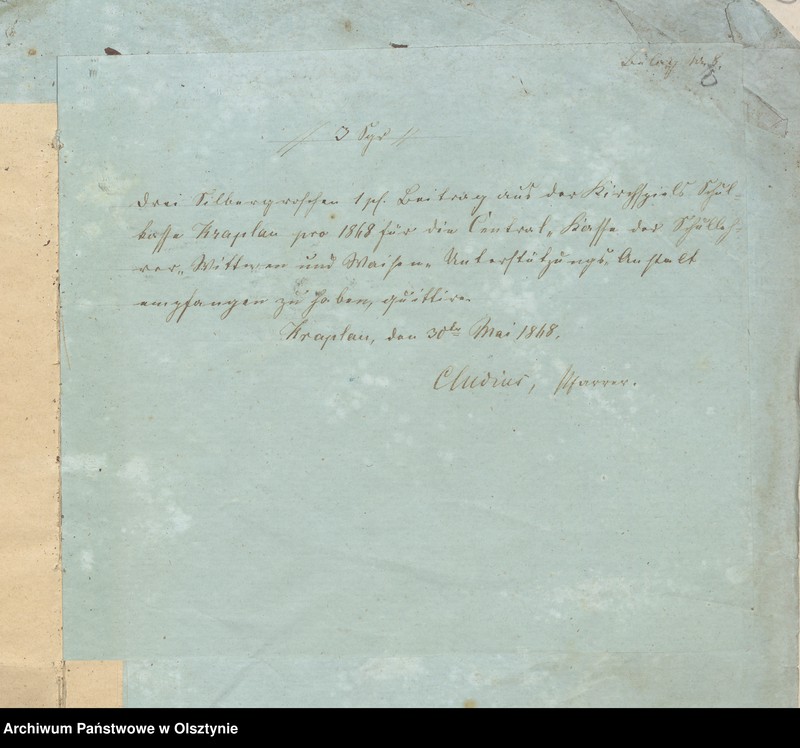 Belag No 8.
// 3 Sgr //
Drei Silbergroschen 1 pf. Beitrag aus der Kirchspiels Schul-
kasse Kraplau pro 1848 für die Central-Kasse der Schulleh-
rer-, Wittwen und Waisen-Unterstützungs-Anstalt
empfangen zu haben, quittire.
Kraplau, den 30ten Mai 1848.
Cludius, Pfarrer.
Archiwum Państwowe w Olsztynie